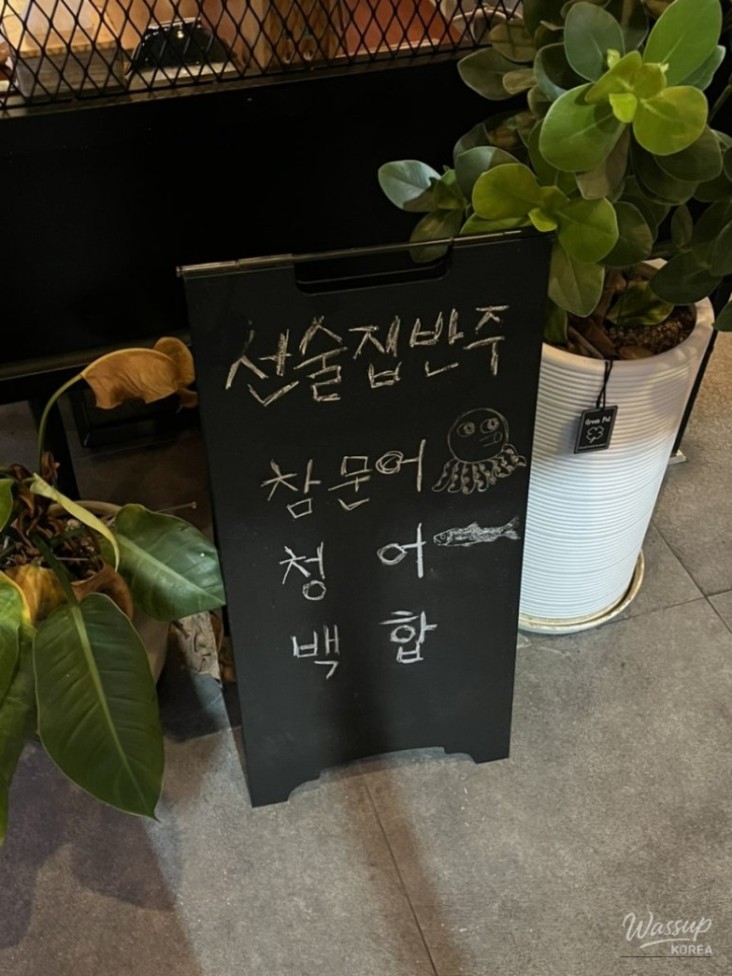 선술집반주
참문어
청어
백합
Green Pot
Wassup
KOREA